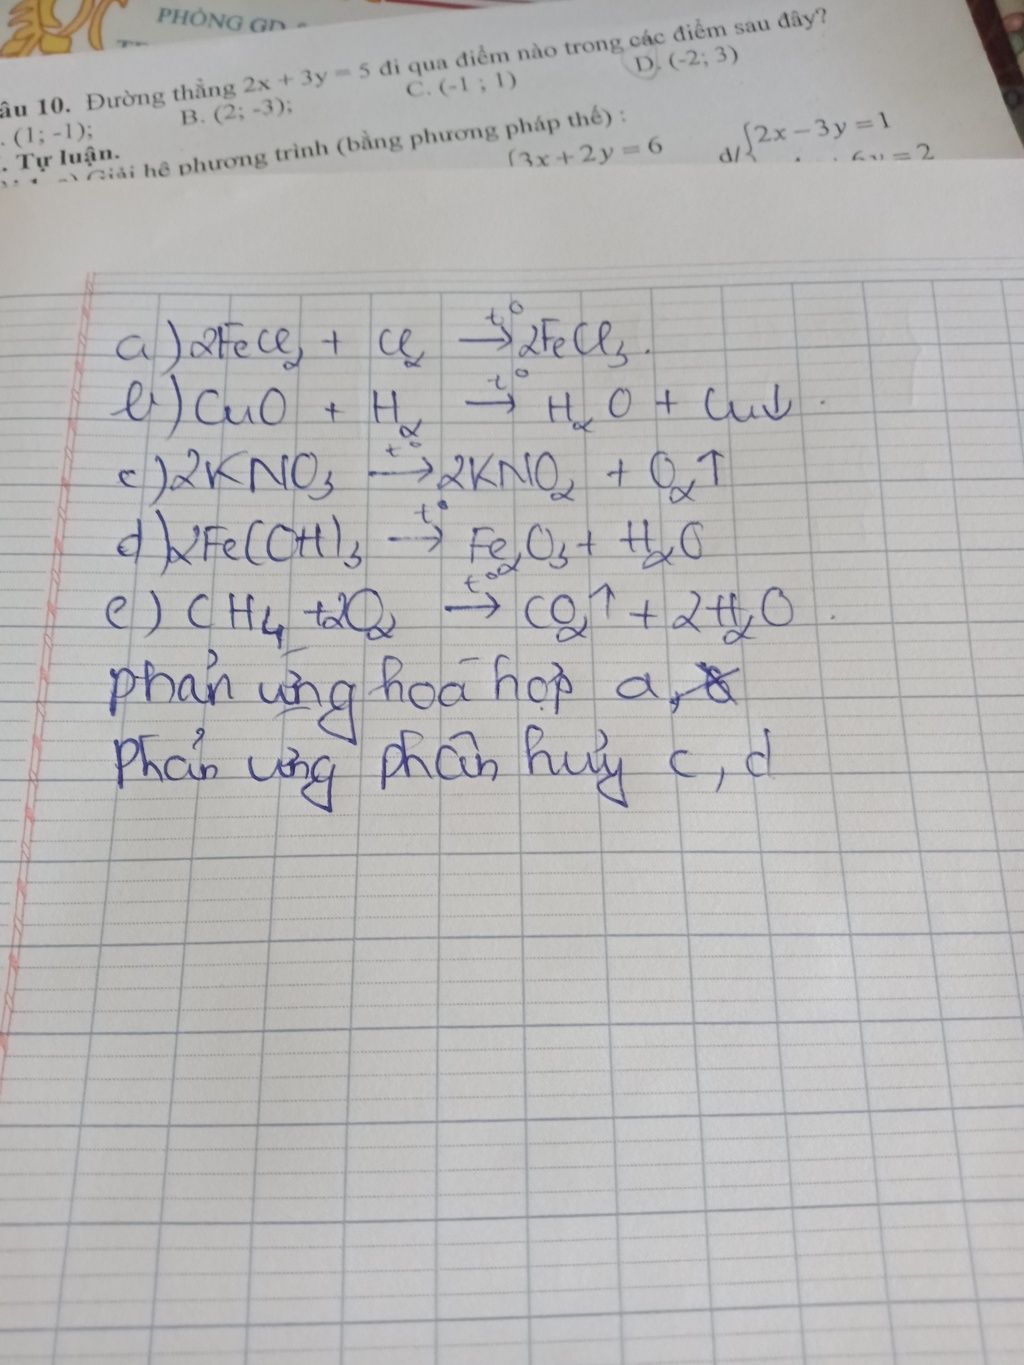 PHÒNG GD
âu 10. Đường thẳng 2x + 3y = 5 đi qua điểm nào trong các điểm sau đây?
. (1; -1); B. (2; -3); C. (-1 ; 1) D. (-2; 3)
. Tự luận.
Giải hệ phương trình (bằng phương pháp thế) :
{3x + 2y = 6 d/ {2x − 3y = 1
6y = 2
a) 2FeCl₂ + Cl₂ —t°→ 2FeCl₃.
b) CuO + H₂ —t°→ H₂O + Cu↓.
c) 2KNO₃ —t°→ 2KNO₂ + O₂↑
d) 2Fe(OH)₃ —t°→ Fe₂O₃ + H₂O
e) CH₄ + 2O₂ —t°→ CO₂↑ + 2H₂O.
phản ứng hoá hợp a,
Phản ứng phân huỷ c, d